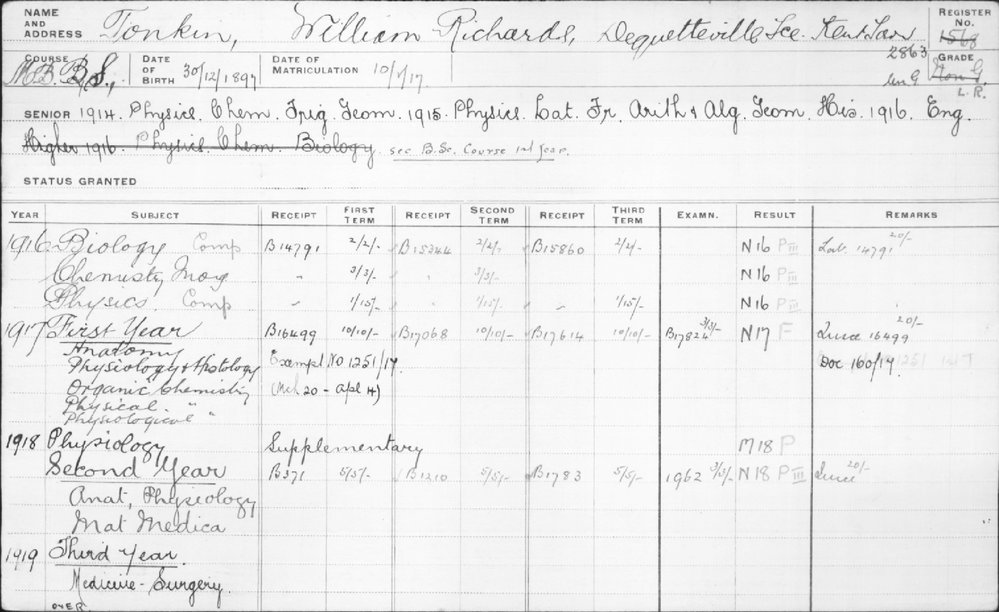 NAME AND ADDRESS Tonkin, William Richards, Dequetteville Tce. Kent Town REGISTER No. 1568 2863
COURSE M.B. B.S., DATE OF BIRTH 30/12/1897 DATE OF MATRICULATION 10/1/17 GRADE Non G. Un G L.R.
SENIOR 1914. Physics. Chem. Trig. Geom. 1915. Physics. Lat. Fr. Arith & Alg. Geom. His. 1916. Eng.
Higher 1916. Physics. Chem. Biology. see B.Sc. Course 1st Year.
STATUS GRANTED
YEAR SUBJECT RECEIPT FIRST TERM RECEIPT SECOND TERM RECEIPT THIRD TERM EXAMN. RESULT REMARKS
1916 Biology Comp B14791 2/2/- B15344 2/2/- B15860 2/2/- N16 P III Lab. 14791 20/-
Chemistry Inorg " 3/3/- " 3/3/- N16 P III
Physics Comp " 1/15/- 1/15/- " 1/15/- N16 P III
1917 First Year B16499 10/10/- B17068 10/10/- B17614 10/10/- B17824 3/3/- N17 F 16499 20/-
Anatomy
Physiology & Histology Exempt. No 1251/17. Doc 160/17. 1251
Organic Chemistry (Mch. 20 - Apl 4)
Physical "
Physiological "
1918 Physiology Supplementary M18 P
Second Year B371 5/5/- B1210 5/5/- B1783 5/5/- 1962 3/3/- N18 P III 20/-
Anat, Physiology
Mat Medica
1919 Third Year.
Medicine - Surgery.
OVER.